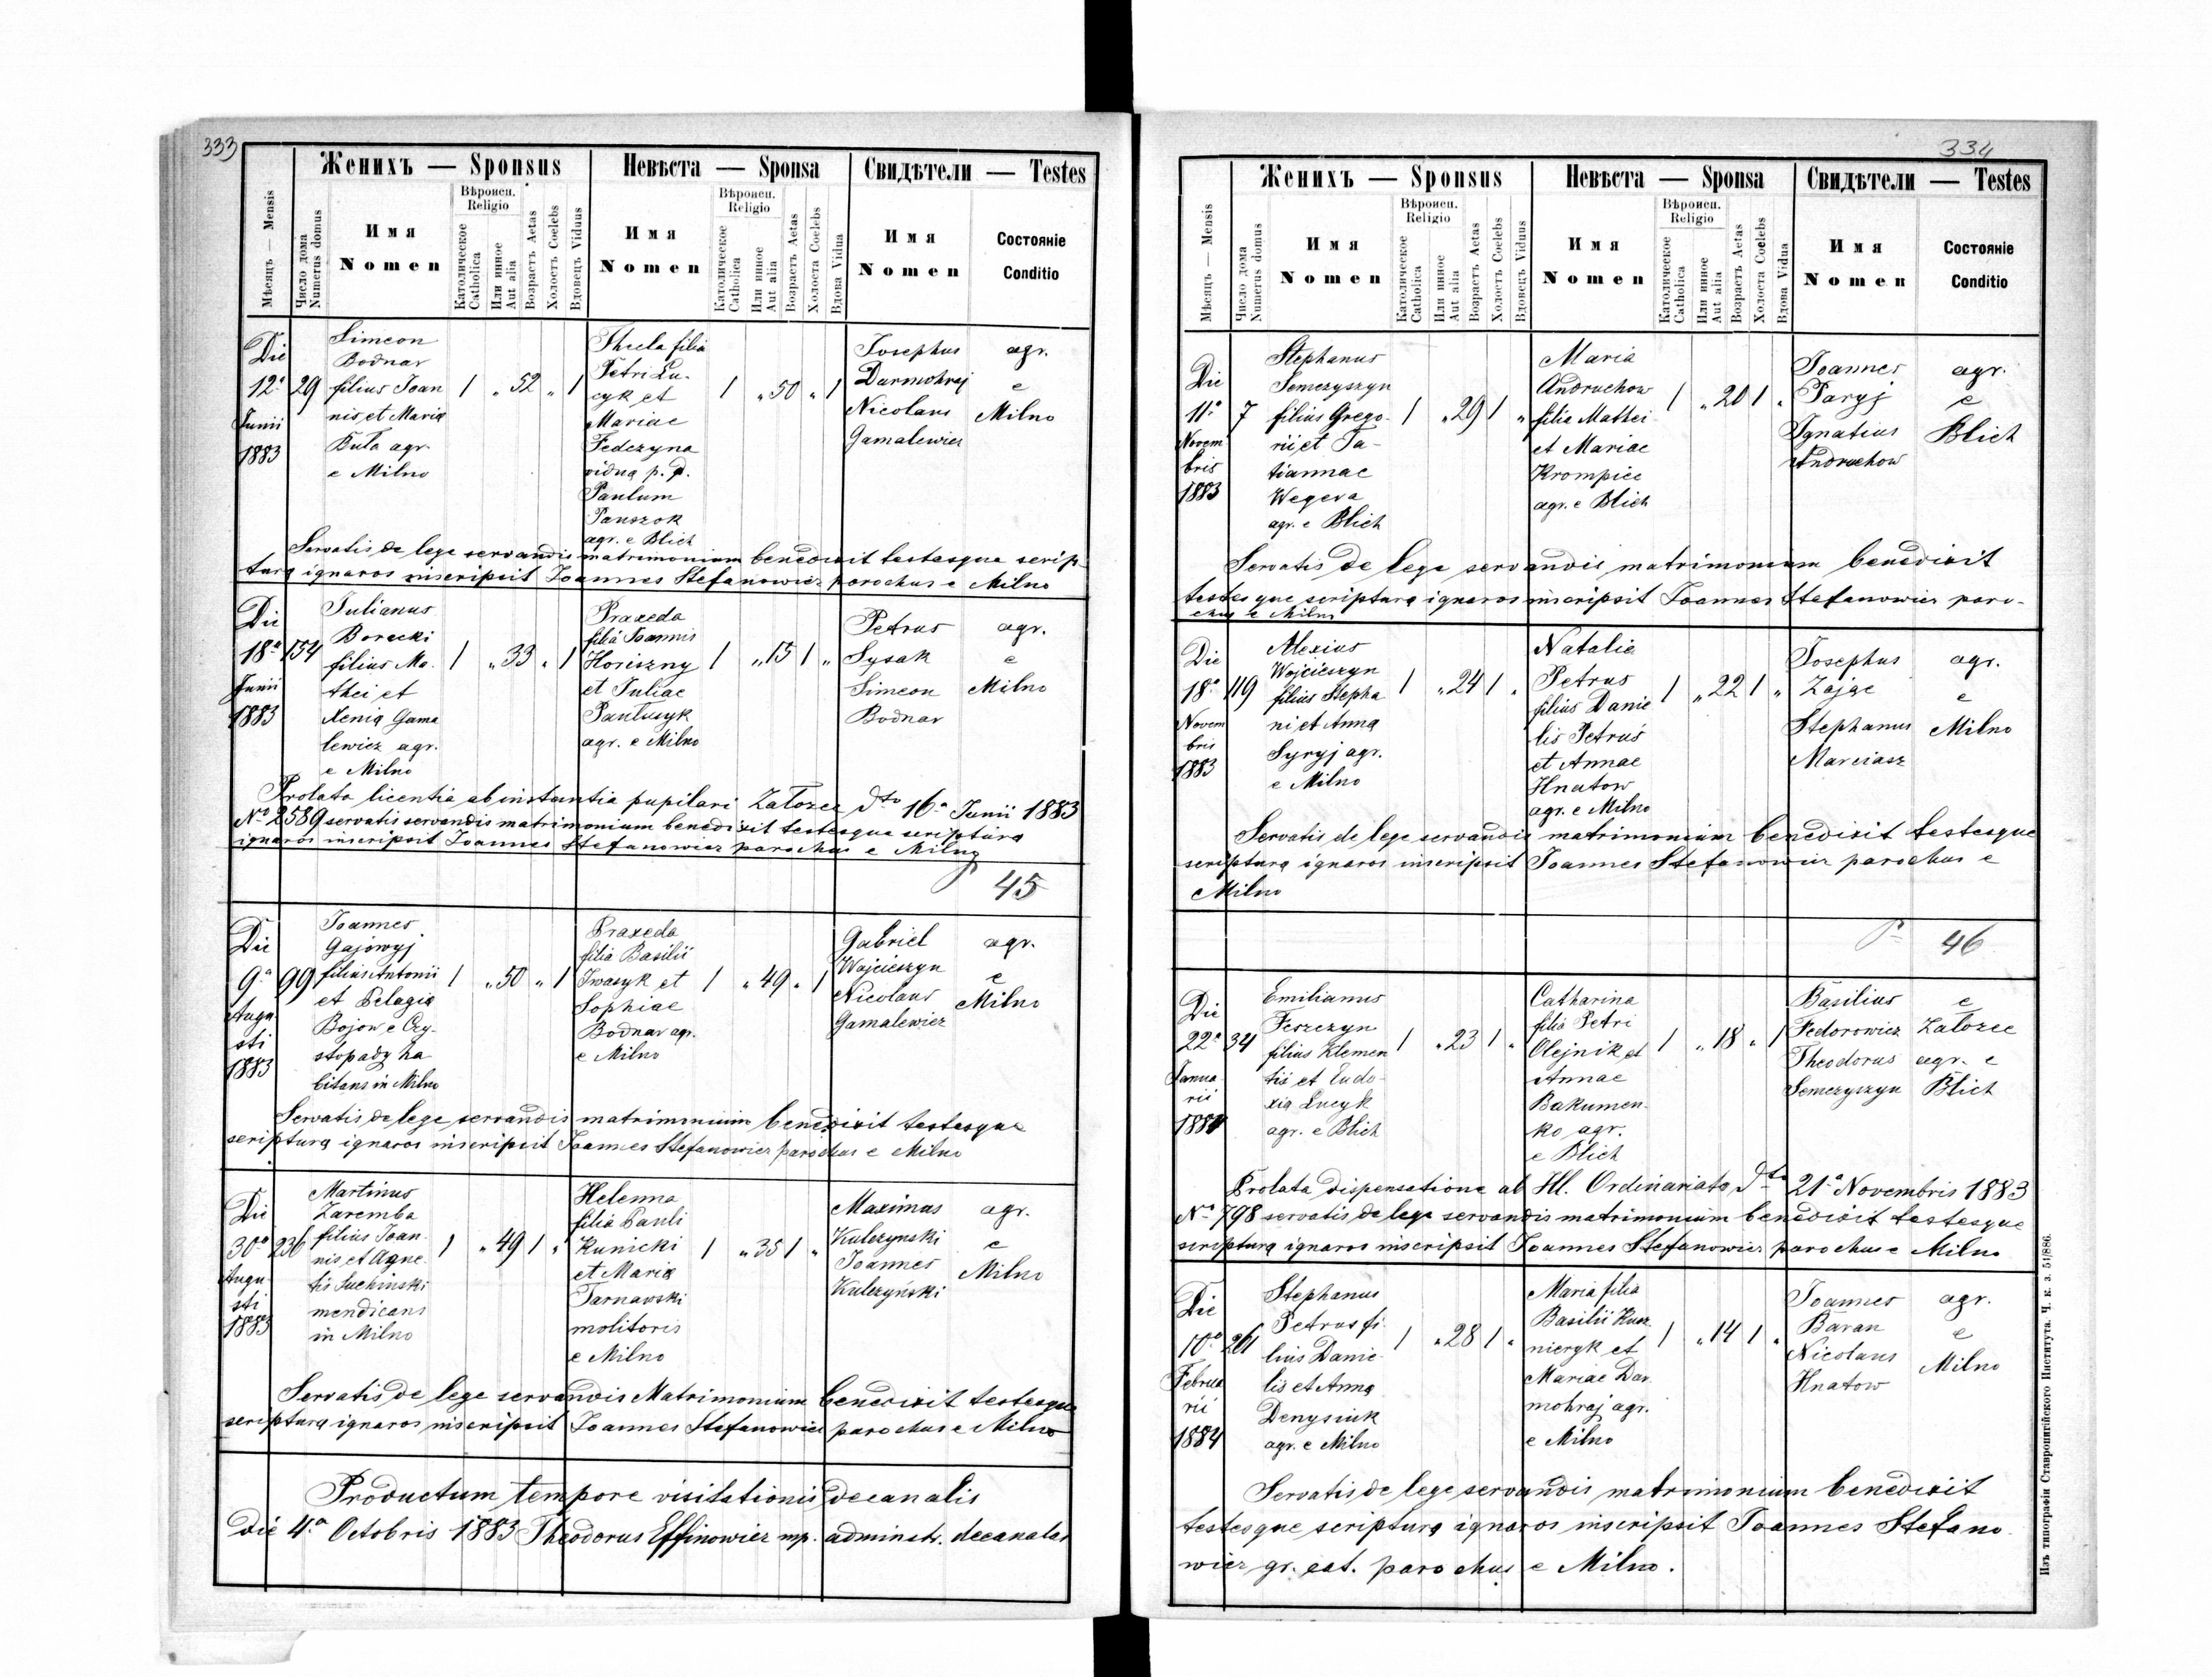 333
Женихъ — Sponsus
Невѣста — Sponsa
Свидѣтели — Testes
Мѣсяцъ — Mensis
Число дома
Numerus domus
Имя
Nomen
Вѣроисп.
Religio
Католическое
Catholica
Или инное
Aut alia
Возрастъ Aetas
Холостъ Coelebs
Вдовецъ Viduus
Имя
Nomen
Вѣроисп.
Religio
Католическое
Catholica
Или инное
Aut alia
Возрастъ Aetas
Холоста Coelebs
Вдова Vidua
Имя
Nomen
Состояніе
Conditio
Die
12ª
Junii
1883
29
Simeon
Bodnar
filius Joan
nis et Maria
Buła agr.
e Milno
1 „ 52 „ 1
Thecla filia
Petri Lu-
cyk et
Mariae
Fedczyna
vidua p. d.
Paulum
Panszok
agr. e Blich
1 „ 50 „ 1
Josephus
Darmohraj
Nicolaus
Gamalewicz
agr.
e
Milno
Servatis de lege servandis matrimonium benedixit testesque scrip-
tura ignaros inscripsit Joannes Stefanowicz parochus e Milno
Die
18ª
Junii
1883
154
Julianus
Borecki
filius Ma-
thei et
Xenia Gama
lewicz agr.
e Milno
1 „ 33 „ 1
Praxeda
filia Joannis
Horiszny
et Juliae
Pantusyk
agr. e Milno
1 „ 15 1 „
Petrus
Sysak
Simeon
Bodnar
agr.
e
Milno
Prolata licentia ab instantia pupilari Załozce dto 16ª Junii 1883
No 2589 servatis servandis matrimonium benedixit testesque scriptura
ignaros inscripsit Joannes Stefanowicz parochus e Milno
45
Die
9ª
Augu
sti
1883
99
Joannes
Gajowyj
filius Antonii
et Pelagia
Bojow e Czy-
stopady ha
bitans in Milno
1 „ 50 „ 1
Praxeda
filia Basilii
Iwasyk et
Sophiae
Bodnar agr.
e Milno
1 „ 49 „ 1
Gabriel
Wojcieszyn
Nicolaus
Gamalewicz
agr.
e
Milno
Servatis de lege servandis matrimonium benedixit testesque
scriptura ignaros inscripsit Joannes Stefanowicz parochus e Milno
Die
30ª
Augu
sti
1883
236
Martinus
Zaremba
filius Joan-
nis et Agne-
tis Suchinski
mendicans
in Milno
1 „ 49 1 „
Helenna
filia Pauli
Kunicki
et Maria
Tarnawski
molitoris
e Milno
1 „ 35 1 „
Maximus
Kulczynski
Joannes
Kulczyński
agr.
e
Milno
Servatis de lege servandis Matrimonium benedixit testesque
scriptura ignaros inscripsit Joannes Stefanowicz parochus e Milno
Productum tempore visitationis decanalis
die 4ª Octobris 1883 Theodorus Effinowicz mp. adminstr. decanatus
334
Женихъ — Sponsus
Невѣста — Sponsa
Свидѣтели — Testes
Мѣсяцъ — Mensis
Число дома
Numerus domus
Имя
Nomen
Вѣроисп.
Religio
Католическое
Catholica
Или инное
Aut alia
Возрастъ Aetas
Холостъ Coelebs
Вдовецъ Viduus
Имя
Nomen
Вѣроисп.
Religio
Католическое
Catholica
Или инное
Aut alia
Возрастъ Aetas
Холоста Coelebs
Вдова Vidua
Имя
Nomen
Состояніе
Conditio
Die
11ª
Novem
bris
1883
7
Stephanus
Semczyszyn
filius Grego-
rii et Ta-
tiannae
Wegera
agr. e Blich
1 „ 29 1 „
Maria
Andruchow
filia Mathei
et Mariae
Krompiec
agr. e Blich
1 „ 20 1 „
Joannes
Paryj
Ignatius
Andruchow
agr.
e
Blich
Servatis de lege servandis matrimonium benedixit
testesque scriptura ignaros inscripsit Joannes Stefanowicz paro-
chus e Milno
Die
18ª
Novem
bris
1883
119
Alexius
Wojcieszyn
filius Stepha
ni et Anna
Syryj agr.
e Milno
1 „ 24 1 „
Natalia
Petrus
filius Danie
lis Petruś
et Annae
Hnatow
agr. e Milno
1 „ 22 1 „
Josephus
Zając
Stephanus
Marciasz
agr.
e
Milno
Servatis de lege servandis matrimonium benedixit testesque
scriptura ignaros inscripsit Joannes Stefanowicz parochus e
Milno
46
Die
22ª
Janua
rii
1884
34
Emilianus
Feszczyn
filius Klemen
tii et Eudo-
xia Lucyk
agr. e Blich
1 „ 23 1 „
Catharina
filia Petri
Olejnik et
Annae
Bakumen-
ko agr.
e Blich
1 „ 18 „ 1
Basilius
Fedorowicz
Theodorus
Semczyszyn
e
Załozce
agr. e
Blich
Prolata dispensatione ab Ill. Ordinariato dto 21ª Novembris 1883
No 798 servatis de lege servandis matrimonium benedixit testesque
scriptura ignaros inscripsit Joannes Stefanowicz parochus e Milno
Die
10ª
Februa
rii
1884
261
Stephanus
Petrus fi-
lius Danie-
lis et Anna
Denysiuk
agr. e Milno
1 „ 28 1 „
Maria filia
Basilii Kusz
nieryk et
Mariae Dar
mohraj agr.
e Milno
1 „ 14 1 „
Joannes
Baran
Nicolaus
Hnatow
agr.
e
Milno
Servatis de lege servandis matrimonium benedixit
testesque scriptura ignaros inscripsit Joannes Stefano-
wicz gr. cat. parochus e Milno.
Изъ типографіи Ставропигійского Института. Ч. к. з. 51/886.